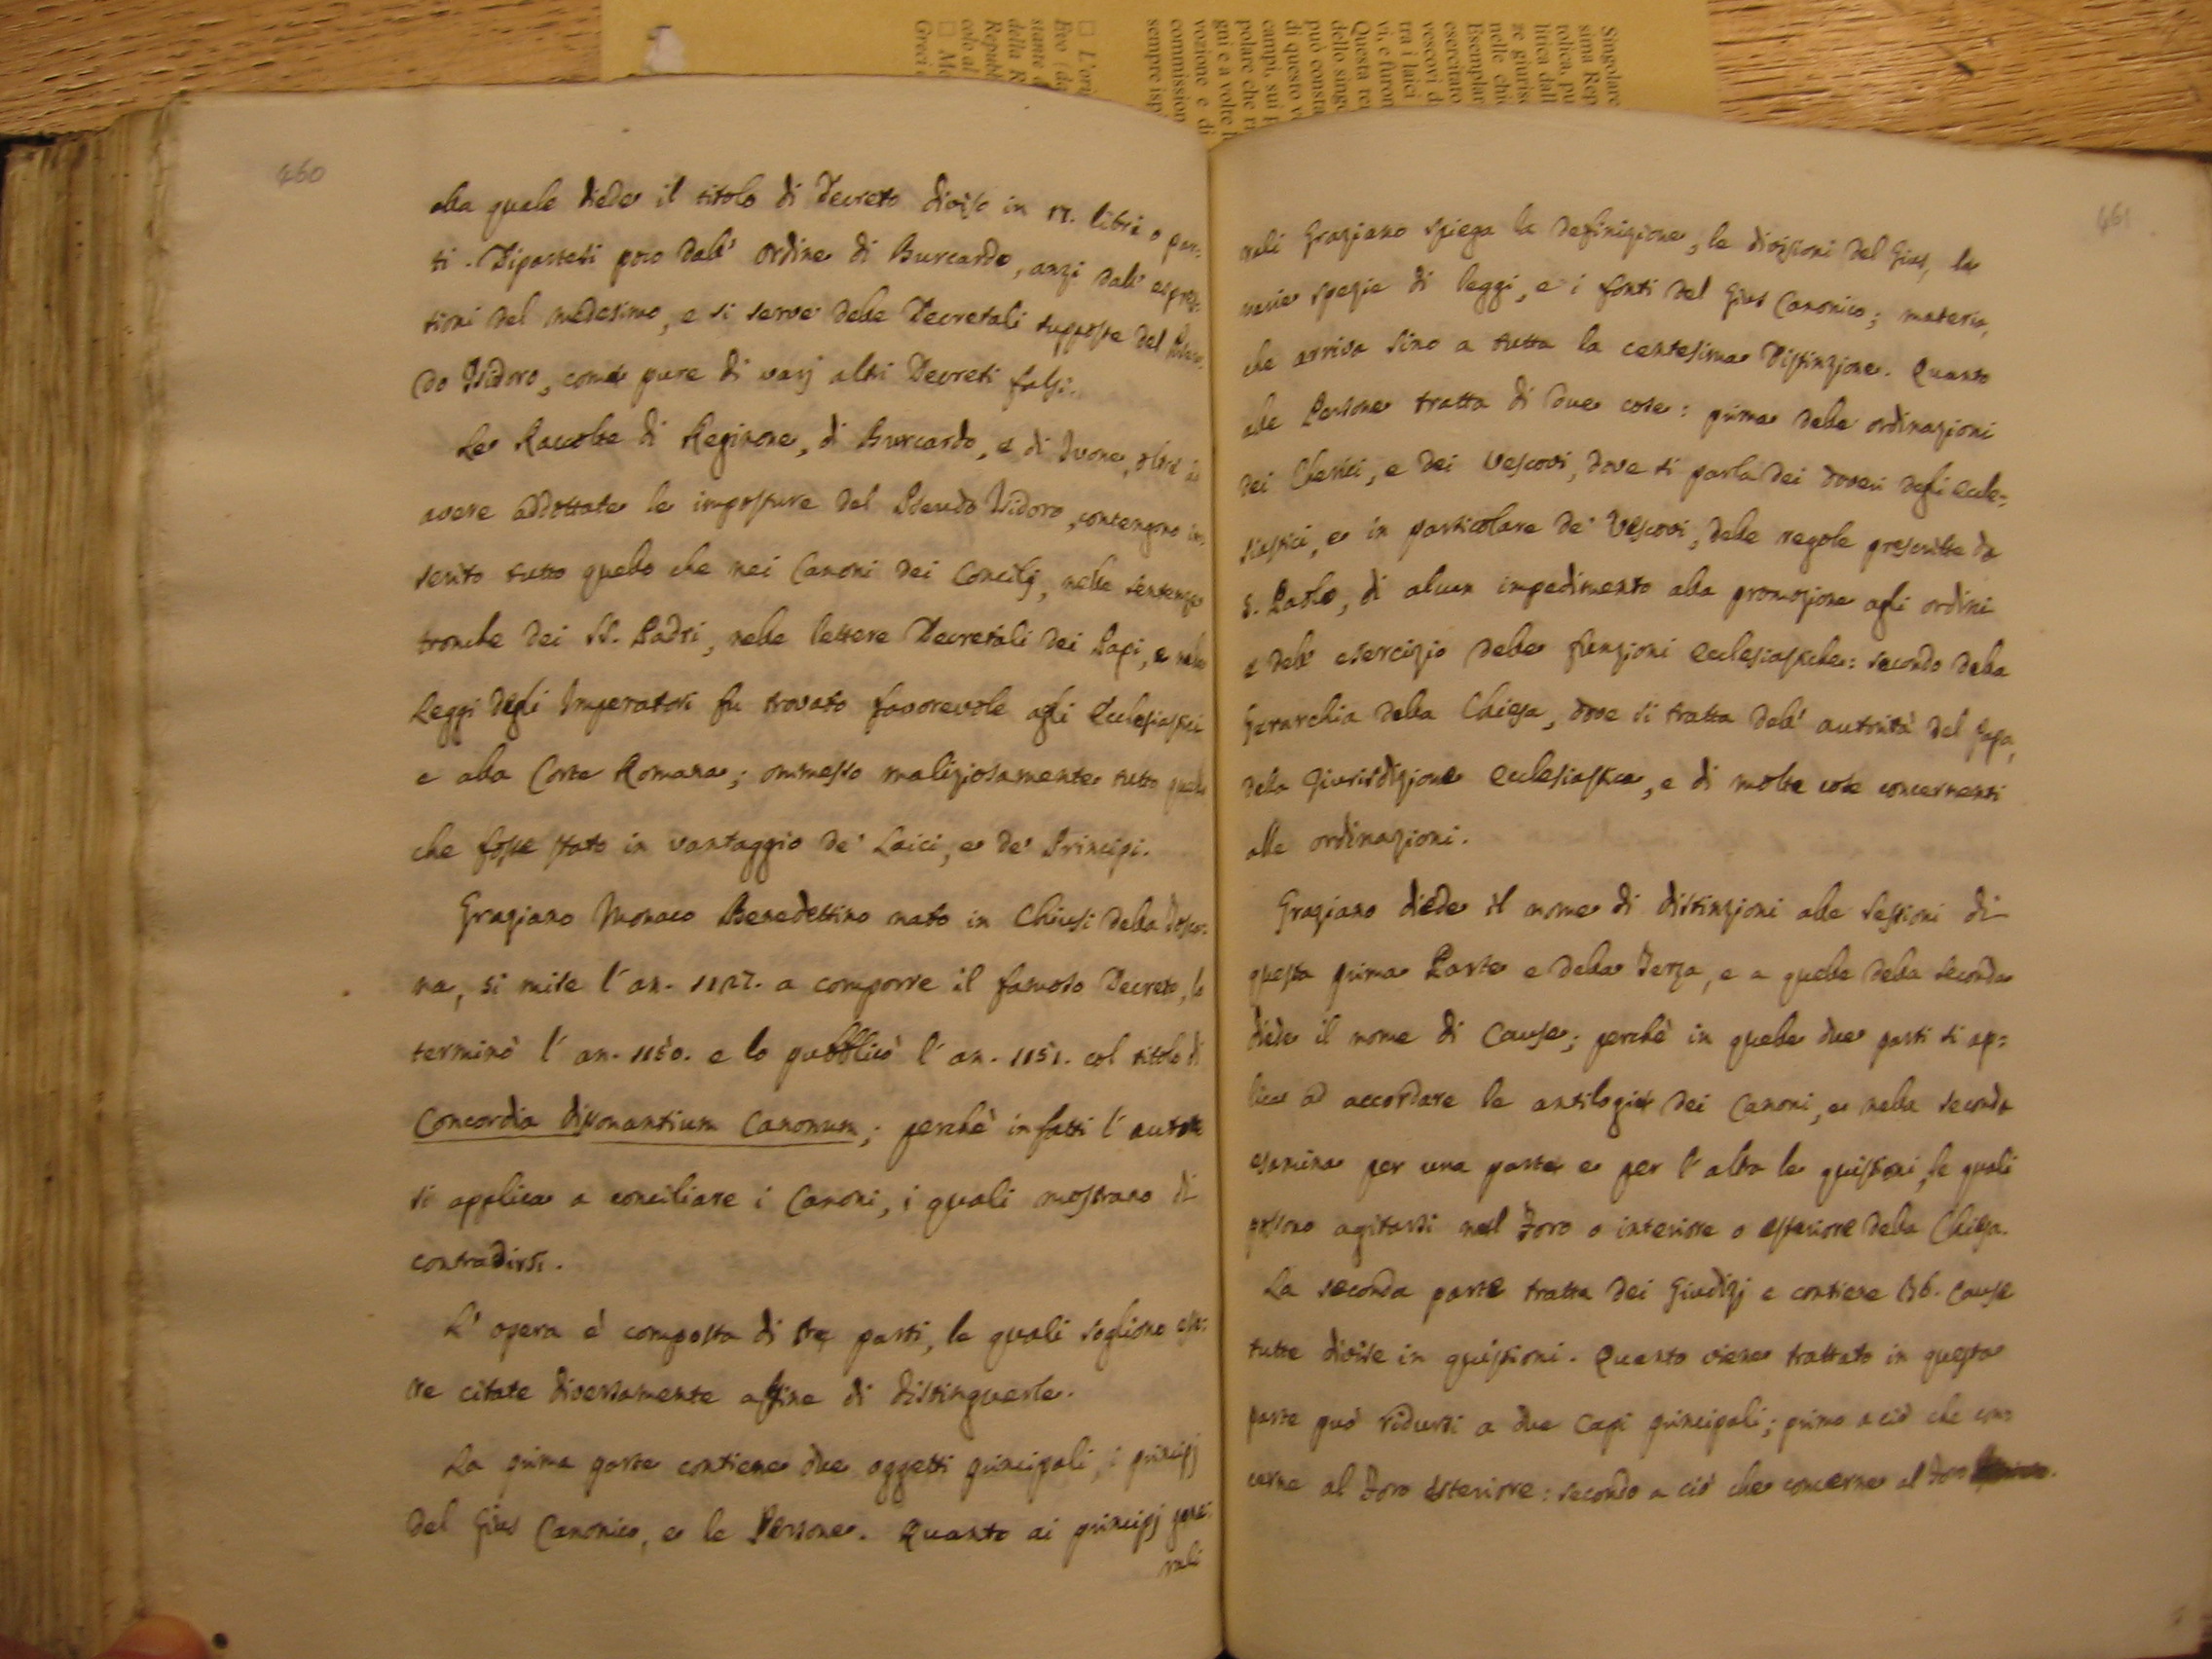 460
alla quale diede il titolo di Decreto diviso in 17. libri o par-
ti. Dipartesi poco dall' ordine di Burcardo, anzi dall' espres-
sioni del medesimo, e si serve delle Decretali supposte del Pseu-
do Isidoro, come pure di varj altri Decreti falsi.
Le Raccolte di Reginone, di Burcardo, e di Ivone, oltre
avere addottate le imposture del Pseudo Isidoro, contengono in-
serito tutto quello che nei Canoni dei Concilj, nelle sentenze
tronche dei SS. Padri, nelle lettere Decretali dei Papi, e nelle
Leggi degli Imperatori fu trovato favorevole agli Ecclesiastici
e alla Corte Romana; ommesso maliziosamente tutto quello
che fosse stato in vantaggio de' Laici, e de' Principi.
Graziano Monaco Benedettino nato in Chiusi della Tosca-
na, si mise l' an. 1127. a comporre il famoso Decreto, lo
terminò l' an. 1150. e lo pubblicò l' an. 1151. col titolo di
Concordia dissonantium Canonum; perchè infatti l' autore
si applica a conciliare i Canoni, i quali mostrano di
contradirsi.
L' opera è composta di tre parti, le quali sogliono esse-
re citate diversamente affine di distinguerle.
La prima parte contiene due oggetti principali, i principj
del Gius Canonico, e le Persone. Quanto ai principj gene-
rali
461
rali Graziano spiega la definizione, le divisioni del Gius, le
varie spezie di leggi, e i fonti del Gius Canonico; materia,
che arriva sino a tutta la centesima Distinzione. Quanto
alle Persone tratta di due cose: prima delle ordinazioni
dei Cherici, e dei Vescovi, dove si parla dei doveri degli Eccle-
siastici, e in particolare de' Vescovi, delle regole prescritte da
S. Paolo, di alcun impedimento alla promozione agli ordini
e dell' esercizio delle funzioni Ecclesiastiche: secondo della
Gerarchia della Chiesa, dove si tratta dell' autorità del Papa,
della Giurisdizione Ecclesiastica, e di molte cose concernenti
alle ordinazioni.
Graziano diede il nome di distinzioni alle Sessioni di
questa prima Parte e della Terza, e a quelle della seconda
diede il nome di Cause; perchè in quelle due parti si ap-
lica ad accordare le antilogie dei Canoni, e nella seconda
esamina per una parte e per l' altra le quistioni, le quali
possono agitarsi nel Foro o interiore o esteriore della Chiesa.
La seconda parte tratta dei Giudizj e contiene 36. Cause
tutte divise in quistioni. Quanto viene trattato in questa
parte può ridursi a due Capi principali; primo a ciò che con-
cerne al Foro esteriore: secondo a ciò che concerne al Foro
Singolare
sima Rep
tolica, pu
litica dall
ze giuris
nelle chi
Esemplar
esercitato
vescovi d
tra i laici
vi, e furon
Questa
dello singo
può consta
di questo v
campi, sui
polare che ri
gni e a volte
vozione e di
commission
sempre isp
□ L'ori
Evo (da
stante
della R
Repubb
colo al
□ Me
Greci